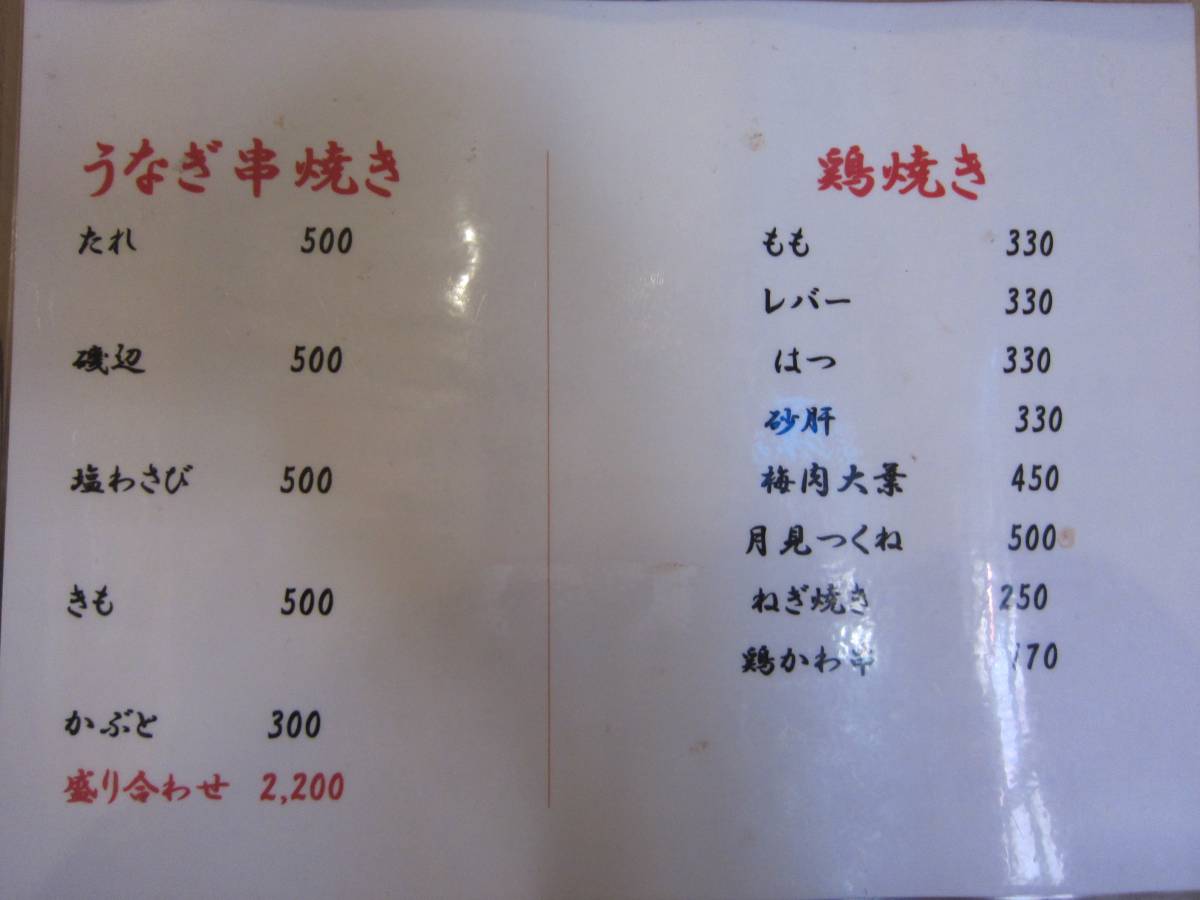 うなぎ串焼き
たれ 500
磯辺 500
塩わさび 500
きも 500
かぶと 300
盛り合わせ 2,200
鶏焼き
もも 330
レバー 330
はつ 330
砂肝 330
梅肉大葉 450
月見つくね 500
ねぎ焼き 250
鶏かわ串 170